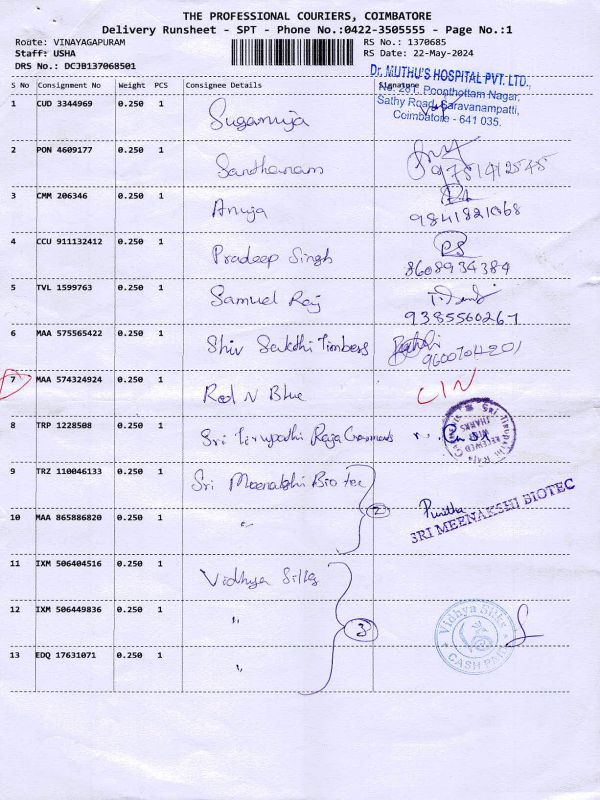 THE PROFESSIONAL COURIERS, COIMBATORE
Delivery Runsheet - SPT - Phone No.:0422-3505555 - Page No.:1
Route: VINAYAGAPURAM RS No.: 1370685
Staff: USHA RS Date: 22-May-2024
DRS No.: DCJB137068501
Dr. MUTHU'S HOSPITAL PVT. LTD.,
No. 281, Poonthottam Nagar,
Sathy Road, Saravanampatti,
Coimbatore - 641 035.
S No Consignment No Weight PCS Consignee Details Signature
1 CUD 3344969 0.250 1 Sugamuja
2 PON 4609177 0.250 1 Santhanam
9751412545
3 CMM 206346 0.250 1 Anuja
9841821068
4 CCU 911132412 0.250 1 Pradeep Singh PS
8608934384
5 TVL 1599763 0.250 1 Samuel Raj
9385560267
6 MAA 575565422 0.250 1 Shiv Sakthi Timbers
9600704201
7 MAA 574324924 0.250 1 Red N Blue CIN
8 TRP 1228508 0.250 1 Sri Tirupathi Raja Garments
RECEIVED WITH THANKS
9 TRZ 110046133 0.250 1 Sri Meenakshi Bio tec
2 Punitha
SRI MEENAKSHI BIOTEC
10 MAA 865886820 0.250 1 "
11 IXM 506404516 0.250 1 Vidhya Silks
12 IXM 506449836 0.250 1 "
3 Vidhya Silks
CASH PAID
13 EDQ 17631071 0.250 1 "